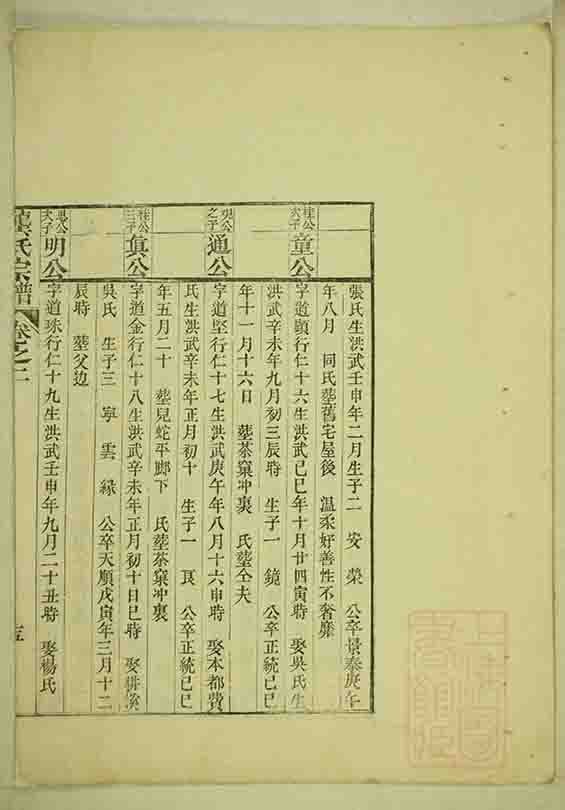 張氏生洪武壬申年二月生子二 安 榮 公卒景泰庚午
年八月 同氏塟舊宅屋後 溫柔好善性不奢靡
桂公
次子
童公
字道顯行仁十六生洪武己巳年十月廿四寅時 娶吳氏生
洪武辛未年九月初三辰時 生子一 鏡 公卒正統己巳
年十一月十六日 塟茶窠冲裏 氏塟仝夫
之子
通公
字道堅行仁十七生洪武庚午年八月十六申時 娶本都費
氏生洪武辛未年正月初十 生子一 艮 公卒正統己巳
年五月二十 塟兒蛇平郎下 氏塟茶窠冲裏
桂公
三子
真公
字道金行仁十八生洪武辛未年正月初十日巳時 娶耕溪
吳氏 生子三 寧 雲 緣 公卒天順戊寅年三月十二
辰時 塟父边
公
次子
明公
字道珠行仁十九生洪武壬申年九月二十丑時 娶楊氏
氏宗譜 卷之二
上海圖書館藏